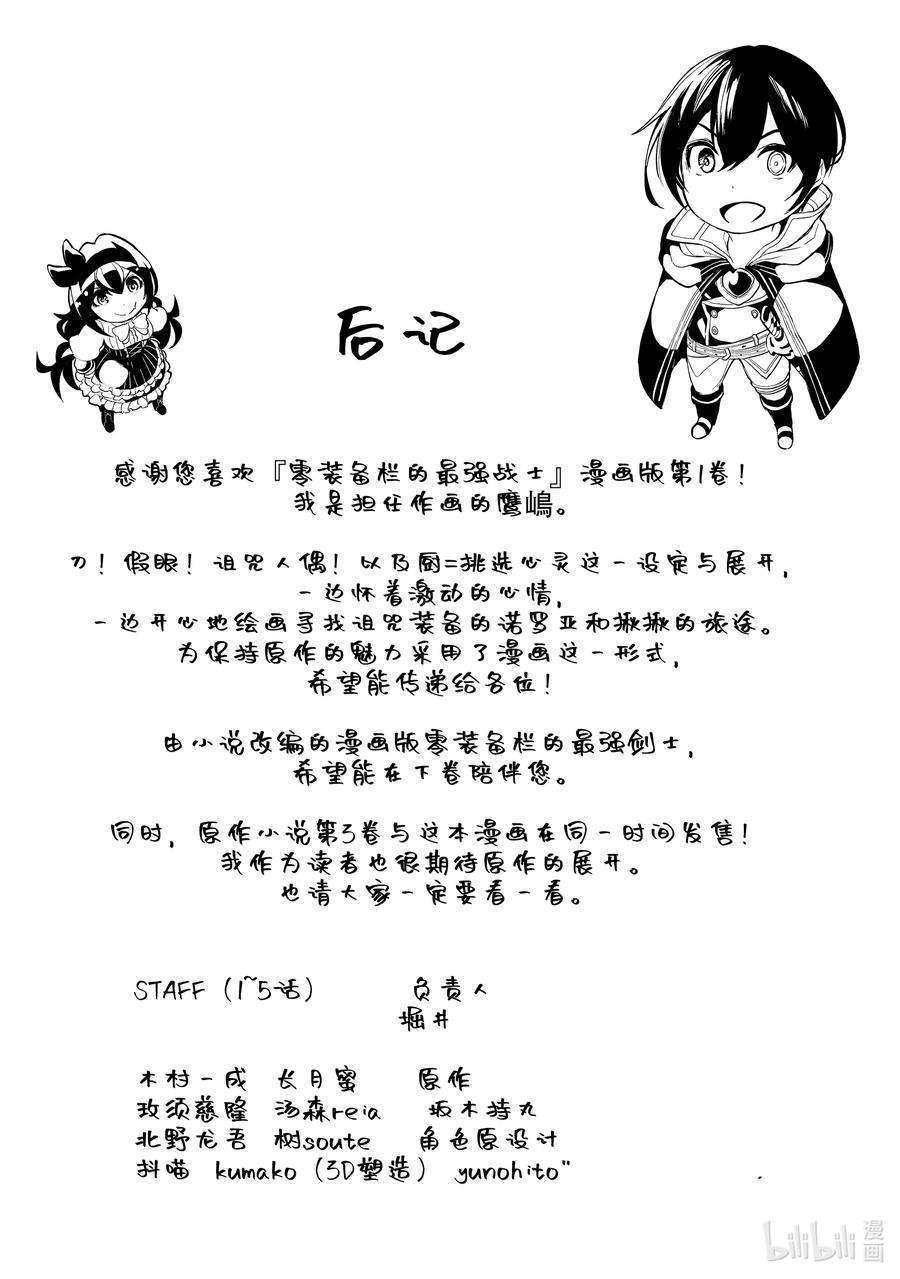 后记
感谢您喜欢『零装备栏的最强战士』漫画版第1卷!
我是担任作画的鹰嶋。
刀!假眼!诅咒人偶!以及厨=挑选心灵这一设定与展开,
一边怀着激动的心情,
一边开心地绘画寻找诅咒装备的诺罗亚和揪揪的旅途。
为保持原作的魅力采用了漫画这一形式,
希望能传递给各位!
由小说改编的漫画版零装备栏的最强剑士,
希望能在下卷陪伴您。
同时,原作小说第3卷与这本漫画在同一时间发售!
我作为读者也很期待原作的展开。
也请大家一定要看一看。
STAFF(1~5话) 负责人
堀井
木村一成 长月蜜 原作
玫须慈隆 汤森reia 坂木持丸
北野龙吾 树soute 角色原设计
抖喵 kumako(3D塑造) yunohito"
bilibili 漫画